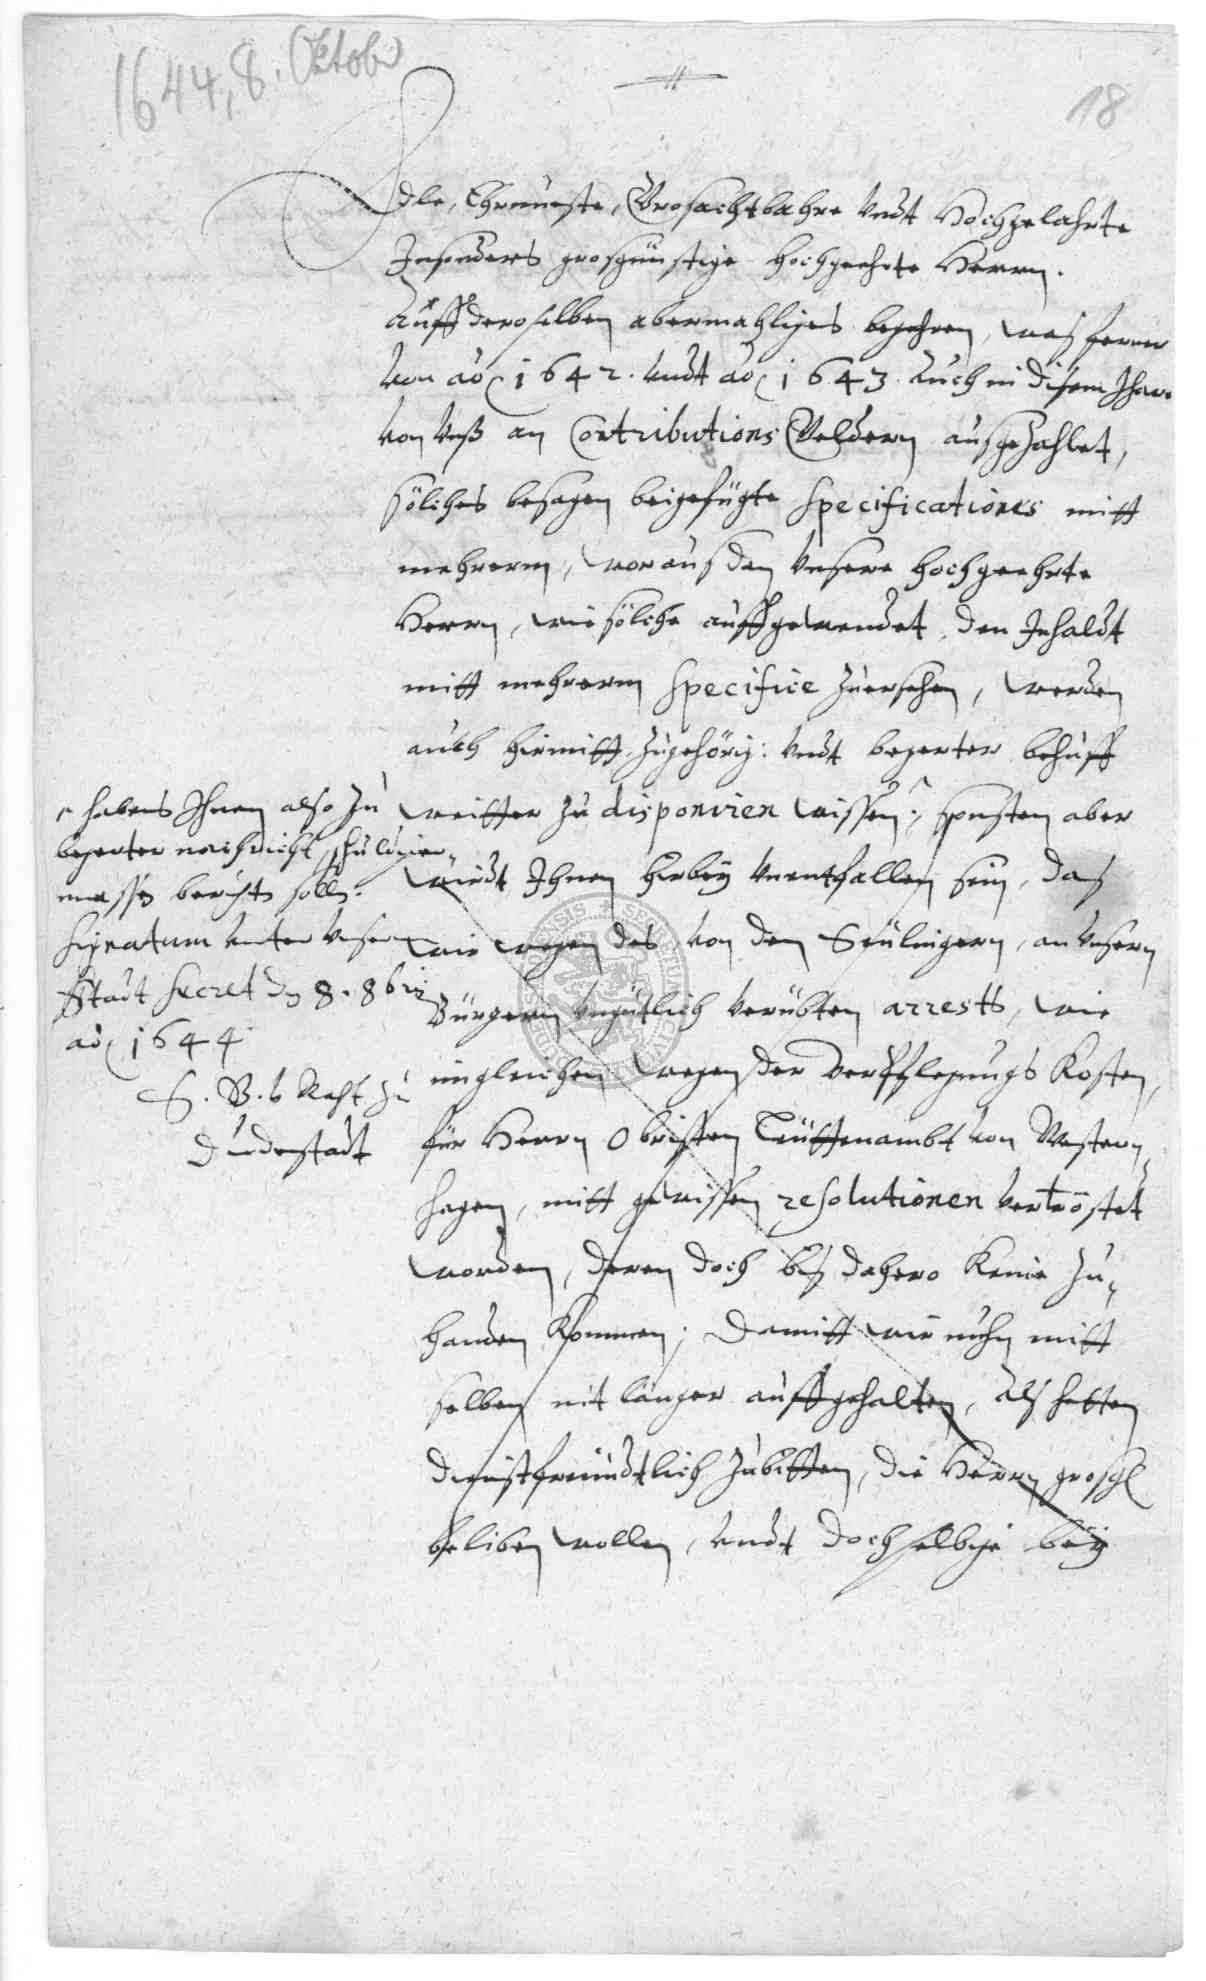 1644, 8. Oktob
18
Edle, Ehrnueste, Grosachtbahre vndt Hochgelahrte
Insonders grosgünstige hochgeehrte Herrn.
Auff deroselben abermahliges begehren, was ferner
von ao 1642. vndt ao 1643 auch in disem Jhare
von vnß an Contributions Geldern ausgezahlet,
solches besagen beigefügte specificationes mitt
mehrerm, woraus dan vnsere hochgeehrte
Herrn, wie solche auffgewendet, den Inhaldt
mitt mehrerm specifice zuersehen, werden
auch hiemitt zugehörig: vndt begerter behuff
weitter zu disponiren wissen; sonsten aber
wirdt Ihnen hirbey vnentfallen sein, das
wir wegen des von den Seülingern, an vnsern
Bürgern vngütlich verübten arrests, wie
imgleichen wegen der Verpflegungs Kosten,
für Herrn Obristen Leüttenambt von Western
hagen, mitt gewissen resolutionen vertröstet
worden, deren doch bis dahero keine zu
handen kommen; Damitt wir nuhn mitt
selben nit länger auffgehalten, als hetten
dienstfreündtlich zubitten, die Herrn grosgl
belieben wollen, vndt doch selbige bey
habens Ihnen also zu
begerter nachricht schuldiger
massen berichten solln.
Signatum vnter vnserm
Stadt Secret den 8. 8bris
ao 1644
B. v Raht zu
Duderstadt